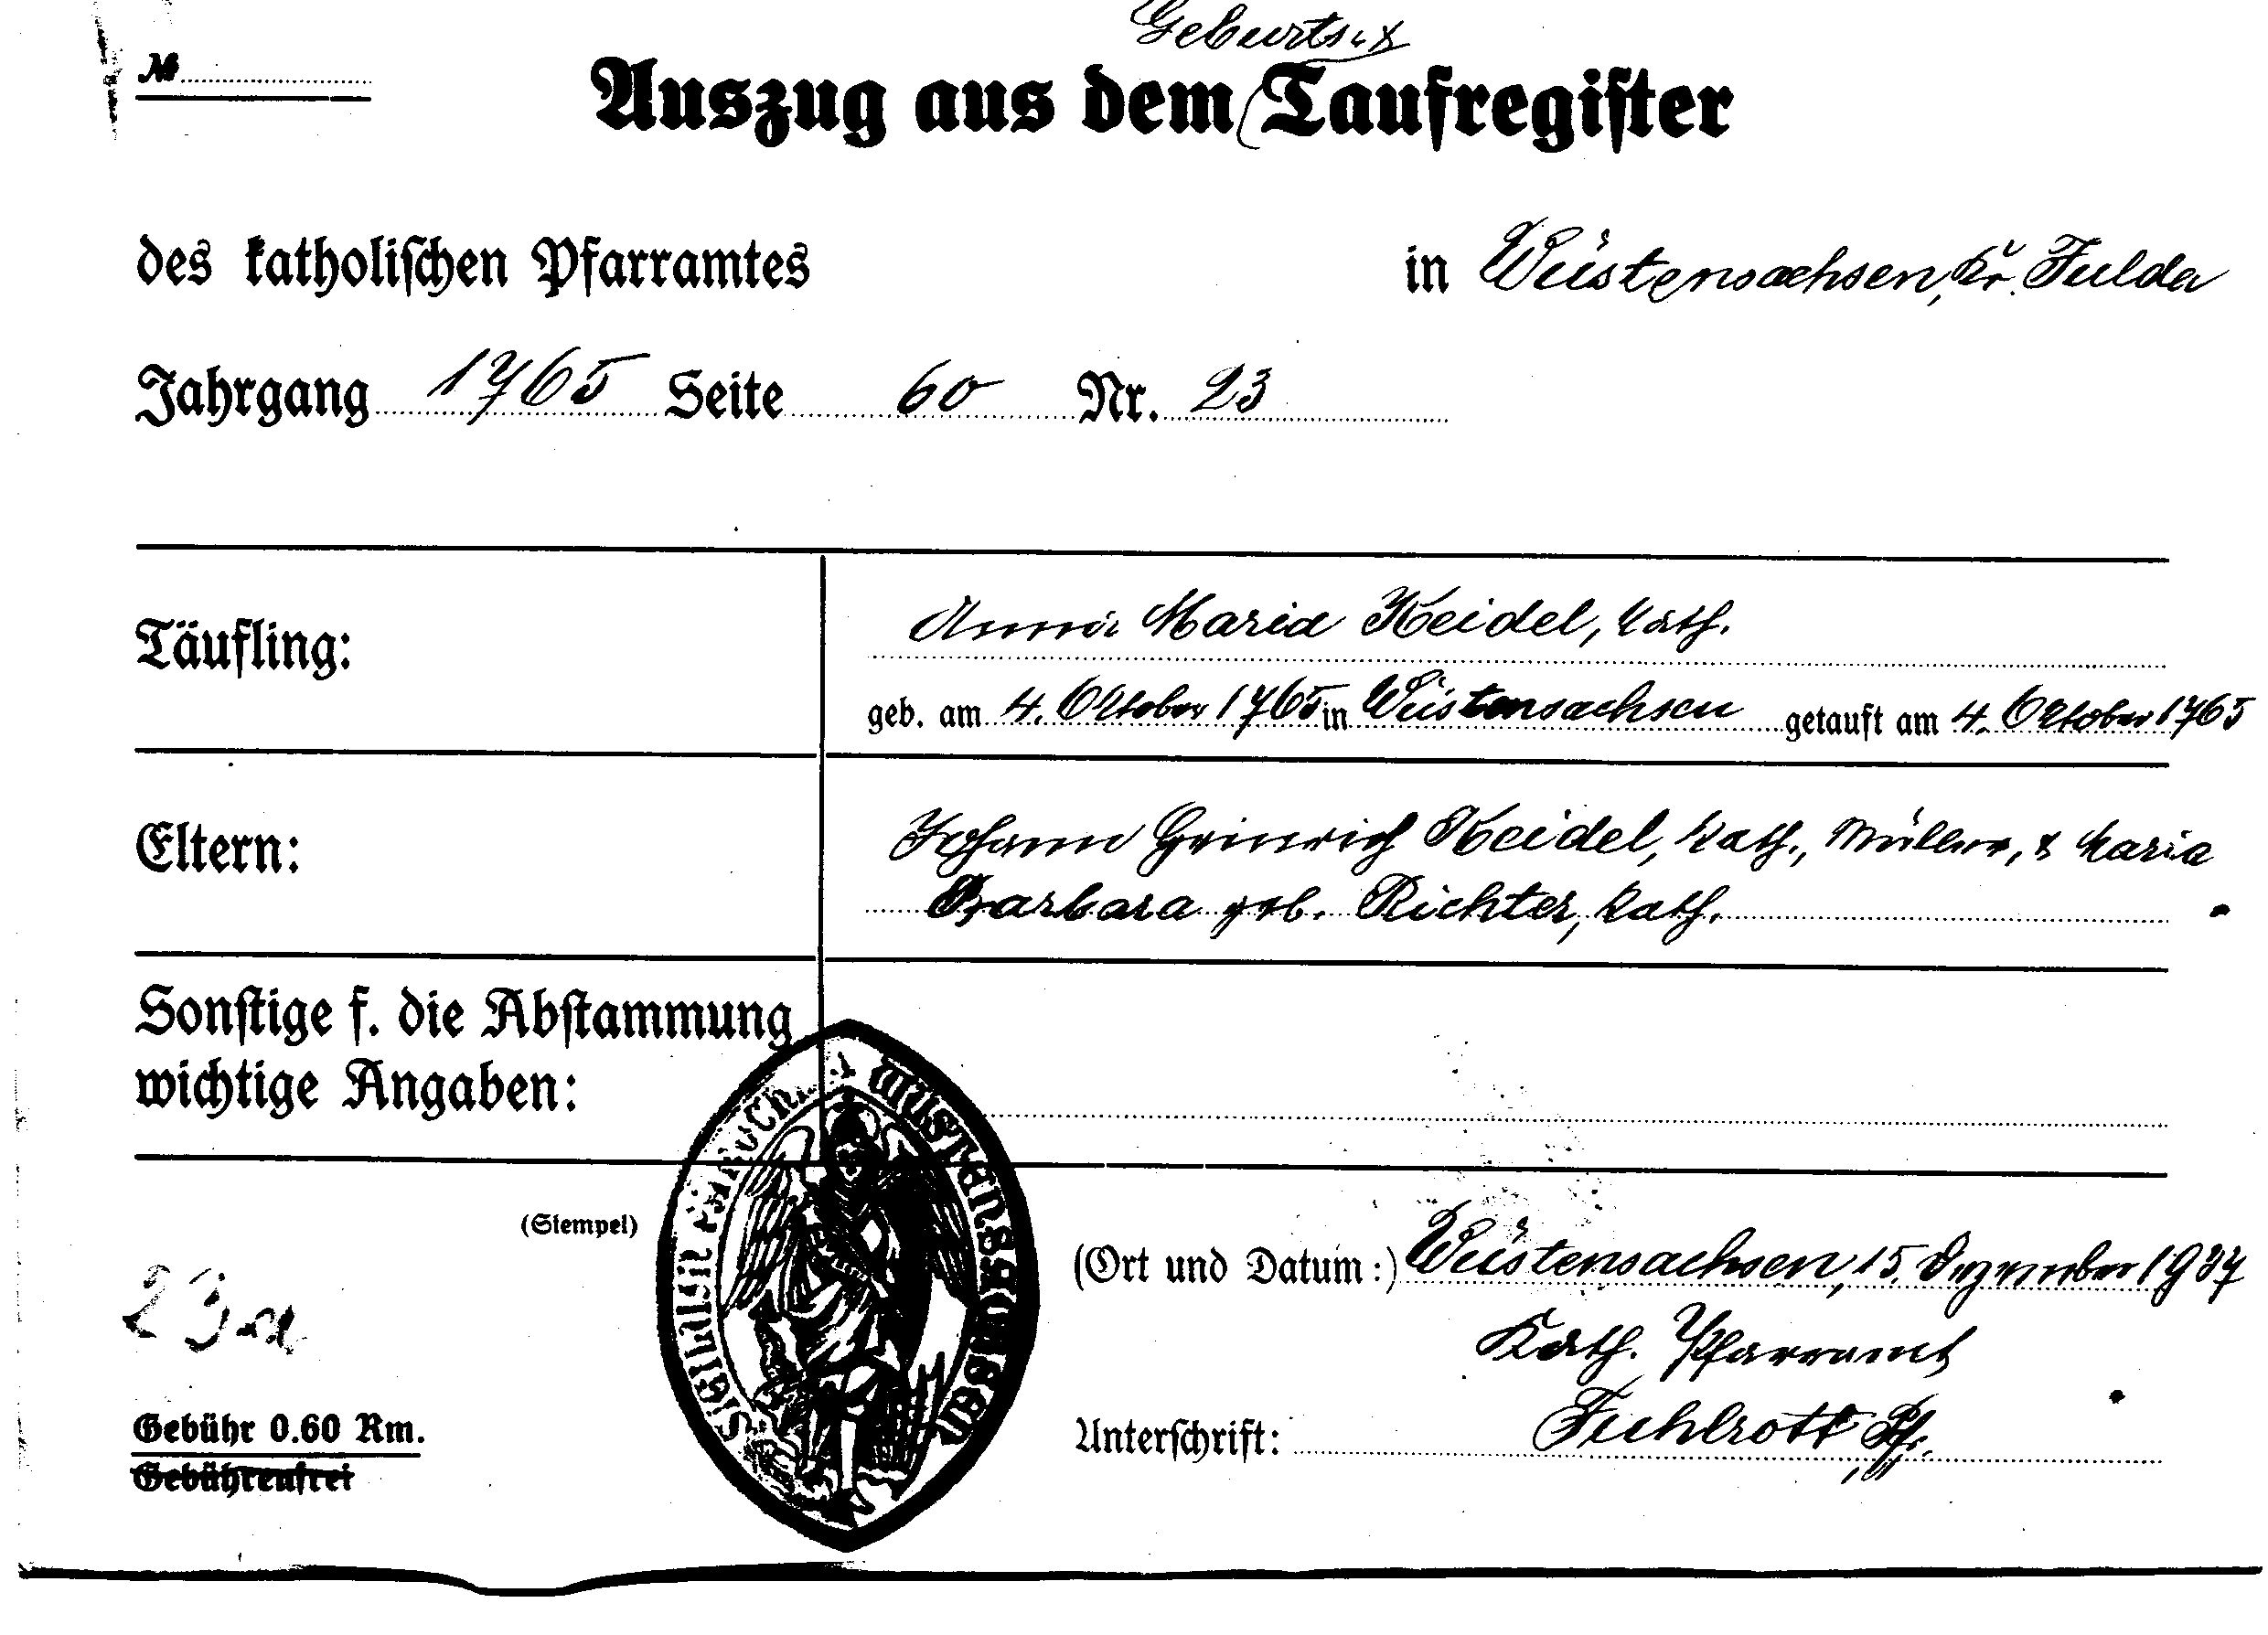 Geburts- &
№
Auszug aus dem Taufregister
des katholischen Pfarramtes in Wüstensachsen, Kr. Fulda
Jahrgang 1765 Seite 60 Nr. 23
Täufling: Anna Maria Heidel, kath.
geb. am 4. Oktober 1765 in Wüstensachsen getauft am 4. Oktober 1765
Eltern: Johann Heinrich Heidel, kath., Müller, & Maria
Barbara geb. Richter, kath.
Sonstige f. die Abstammung
wichtige Angaben:
(Stempel)
(Ort und Datum:) Wüstensachsen, 15. Dezember 1937
23a
Kath. Pfarramt
Gebühr 0.60 Rm.
Unterschrift: Fuhlrott, Pfr.
Gebührenfrei